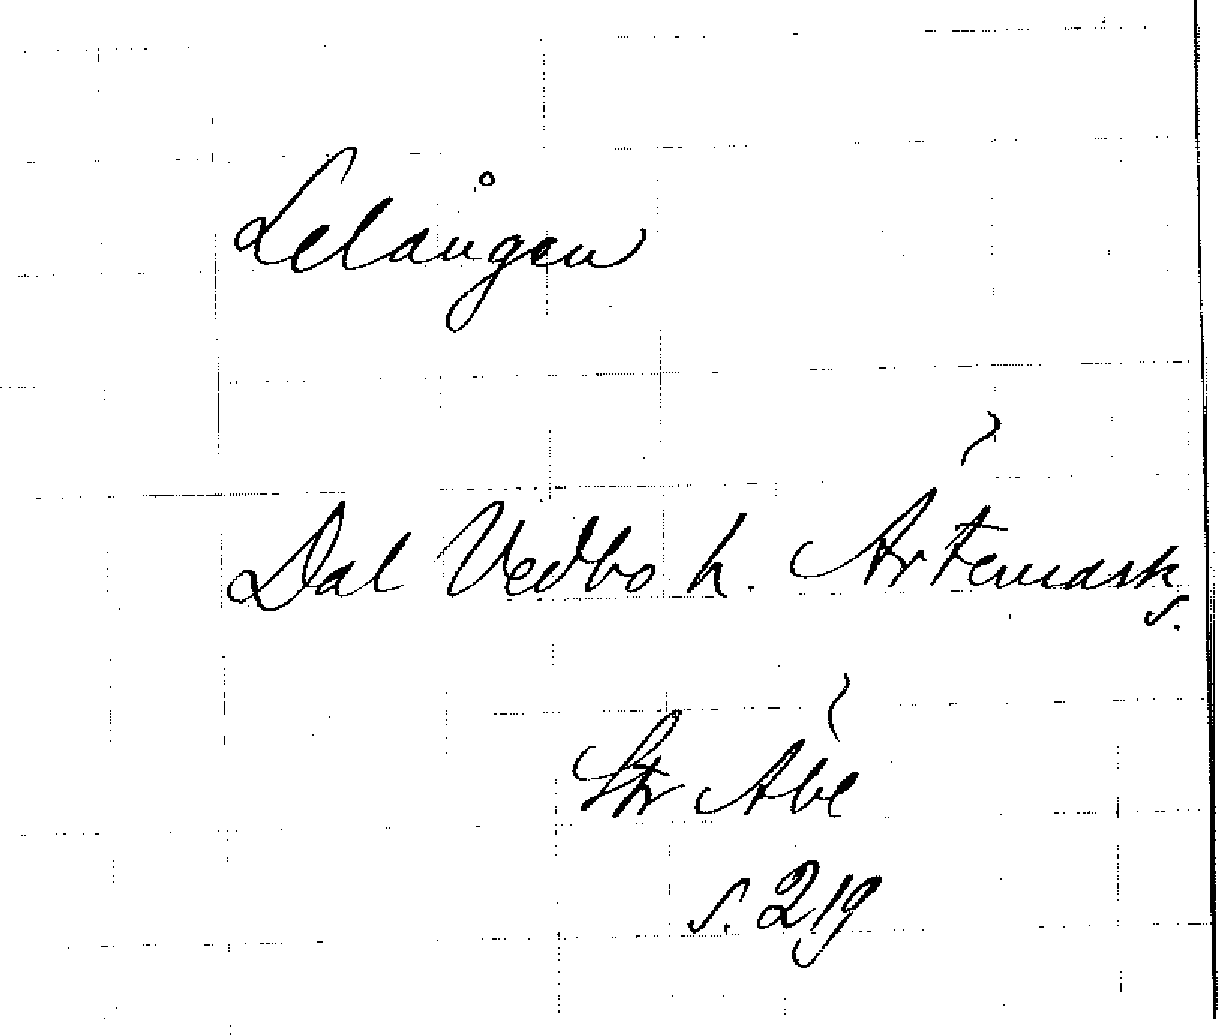 Lelången
Dal Vedbo h. Ärtemark
s.
Str Abe
s. 219